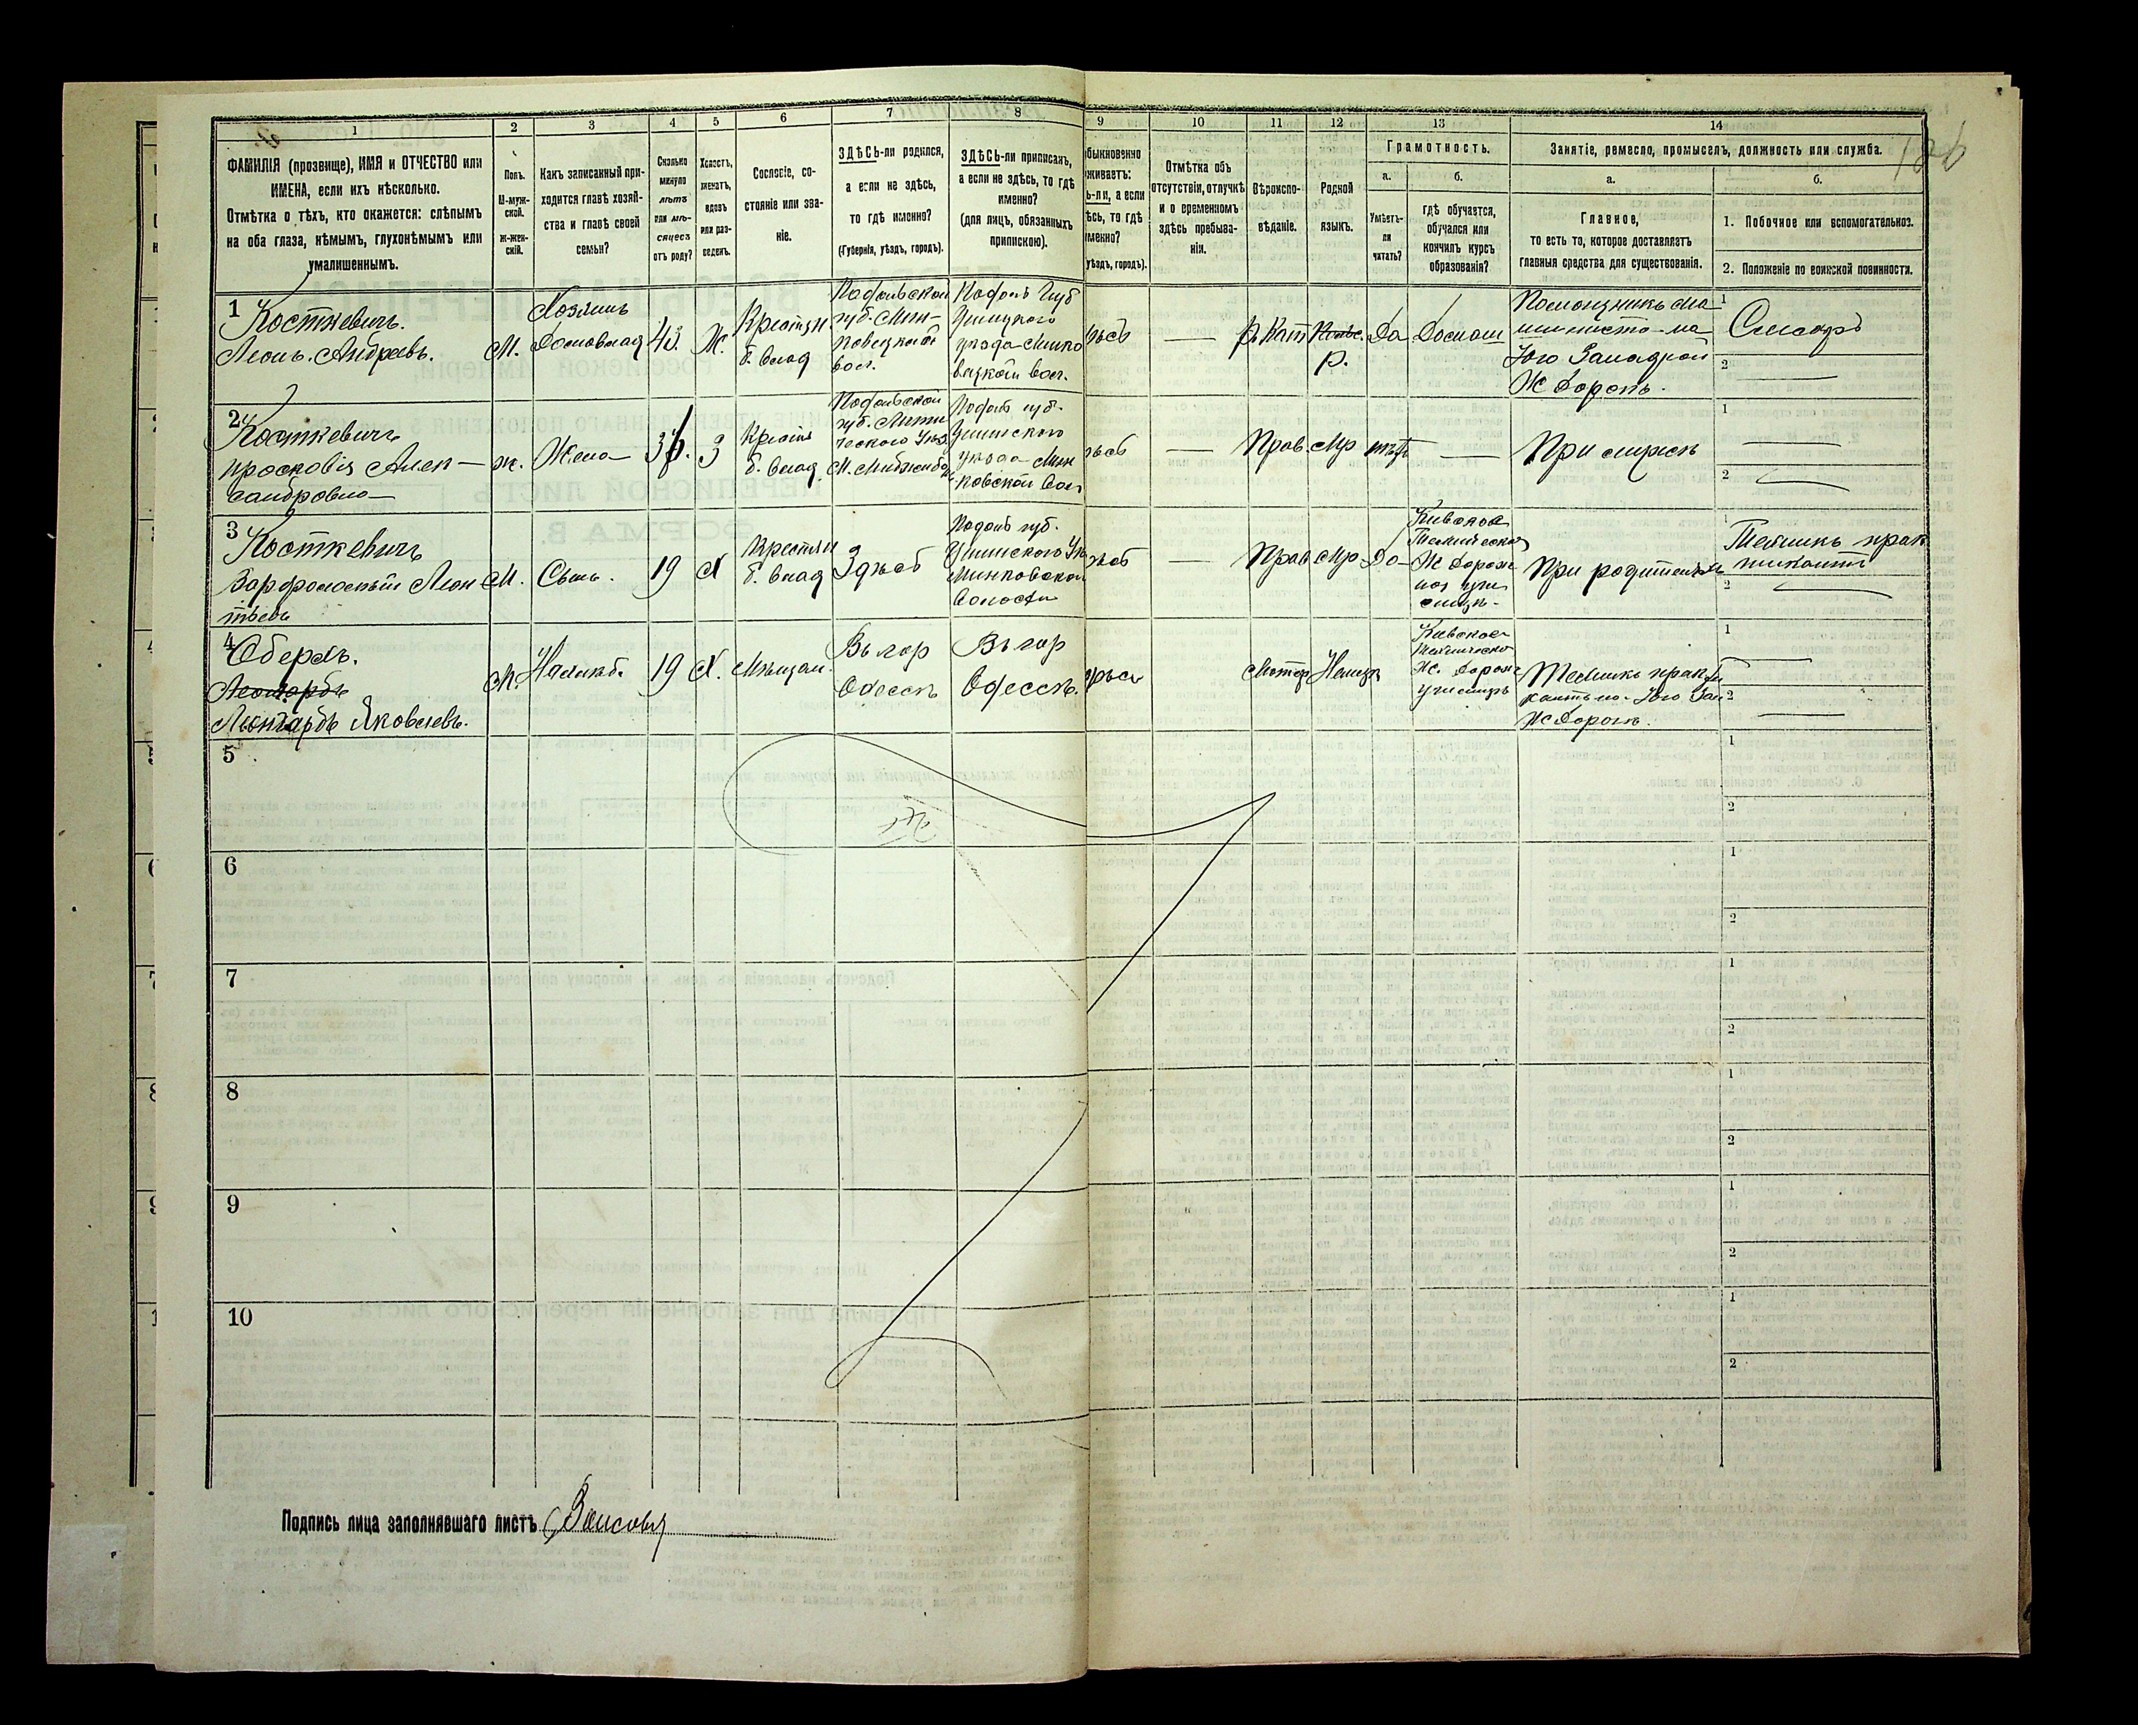 1
2
3
4
5
6
7
8
9
10
11
12
13
14
ФАМИЛІЯ (прозвище), ИМЯ и ОТЧЕСТВО или
ИМЕНА, если ихъ нѣсколько.
Отмѣтка о тѣхъ, кто окажется: слѣпымъ
на оба глаза, нѣмымъ, глухонѣмымъ или
умалишеннымъ.
Полъ.
М-муж-
ской.
Ж-жен-
скій.
Какъ записанный при-
ходится главѣ хозяй-
ства и главѣ своей
семьи?
Сколько
минуло
лѣтъ
или мѣ-
сяцевъ
отъ роду?
Холостъ,
женатъ,
вдовъ
или раз-
веденъ.
Сословіе, со-
стояніе или зва-
ніе.
ЗДѢСЬ-ли родился,
а если не здѣсь,
то гдѣ именно?
(Губернія, уѣздъ, городъ).
ЗДѢСЬ-ли приписанъ,
а если не здѣсь, то гдѣ
именно?
(для лицъ, обязанныхъ
припискою).
быкновенно
живаетъ:
ь-ли, а если
ѣсь, то гдѣ
менно?
уѣздъ, городъ).
Отмѣтка объ
отсутствіи, отлучкѣ
и о временномъ
здѣсь пребыва-
ніи.
Вѣроиспо-
вѣданіе.
Родной
языкъ.
Грамотность.
а.
б.
Умѣетъ-
ли
читать?
гдѣ обучается,
обучался или
кончилъ курсъ
образованія?
Занятіе, ремесло, промыселъ, должность или служба.
а.
б.
Главное,
то есть то, которое доставляетъ
главныя средства для существованія.
1. Побочное или вспомогательное.
2. Положеніе по воинской повинности.
1
Косткевичъ.
Леонъ. Андреевъ.
М.
Хозяинъ
Домовлад
43.
Ж.
Крестян.
б. влад
Подольской
губ. Мин-
ковецкой
вол.
Подоль Губ
Ушицкого
уезда Минко
вецкой вол.
—
р. Кат
Р.
Да
Домаш
Помощникъ ма
шиниста на
Юго Западной
Ж Дорогѣ.
1
Слесарь
2
—
2
Косткевичъ
Просковія Алек-
сандровна
ж.
Жена
3
Крестя
б. влад
Подольской
губ.
Подоль губ.
Ушицкого
уезда Мин
ковской Вол
—
Прав.
Мр
нѣтъ
—
При мужѣ
1
—
2
—
3
Косткевичъ
Варфоломѣй Леон
тьевъ
М.
Сынъ.
19
Х
Крестян
б. влад
Здѣсь
Подоль губ.
Ушицкого Уѣ
Минковской
Волости
—
Прав
Мр
Да
Кіевское
Техническое
Ж Дорож
ное учи
лище
При родителяхъ
1
Техникъ прак
тикантъ
2
—
4
Оберлъ.
Леонгардъ Яковлевъ.
М.
19
Х.
Мѣщан.
Въ гор
Одессѣ
Въ гор
Одессѣ.
Лютер
Немецк
Кіевское
Техническо
Ж. Дорож
училище
Техникъ практи
кантъ на Юго Зап
Ж Дорогѣ.
1
—
2
—
5
1
2
6
1
2
7
1
2
8
1
2
9
1
2
10
1
2
Подпись лица заполнявшаго листъ